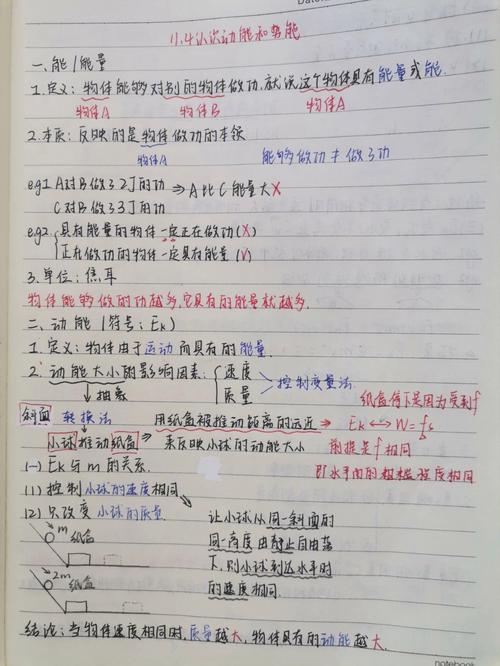 11.4认识动能和势能
一、能/能量
1.定义：物体能够对别的物体做功，就说这个物体具有能量或能.
物体A 物体B 物体A
2.本质：反映的是物体做功的本领
物体A 能够做功≠做了功
eg1 A对B做了2J的功 ⇒ A比C能量大×
C对B做了3J的功
eg2 具有能量的物体一定正在做功(×)
正在做功的物体一定具有能量(√)
3.单位：焦耳
物体能够做的功越多，它具有的能量就越多.
二、动能(符号：Ek)
1.定义：物体由于运动而具有的能量.
2.动能大小的影响因素：速度
质量 控制变量法.
抽象 纸盒停下是因为受到f
斜面 转换法 用纸盒被推动距离的远近 ⇒ Ek↔W=fs
小球推动纸盒 ⇒ 来反映小球的动能大小 前提是f相同
即水平面的粗糙程度相同
(一) Ek与m的关系.
(1) 控制小球的速度相同
(2) 只改变小球的质量. 让小球从同一斜面的
m 纸盒 同一高度由静止自由落
下，则小球到达水平时
2m 纸盒 的速度相同.
结论：当物体速度相同时，质量越大，物体具有的动能越大.
notebook